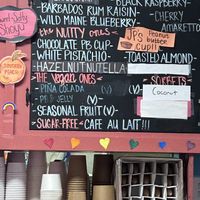 BLACK RASPBERRY
BARBADOS RUM RAISIN
CHERRY
WILD MAINE BLUEBERRY
AMARETTO
the NUTTY ONES
JP'S Peanut
butter
CUP!!
CHOCOLATE PB CUP
WHITE PISTACHIO
TOASTED ALMOND
HAZELNUT NUTELLA
the vegan ONES
SORBETS
PINA COLADA (V)
Coconut
PB & JELLY (V)
SEASONAL FRUIT (V)
SUGAR-FREE CAFE AU LAIT!!!